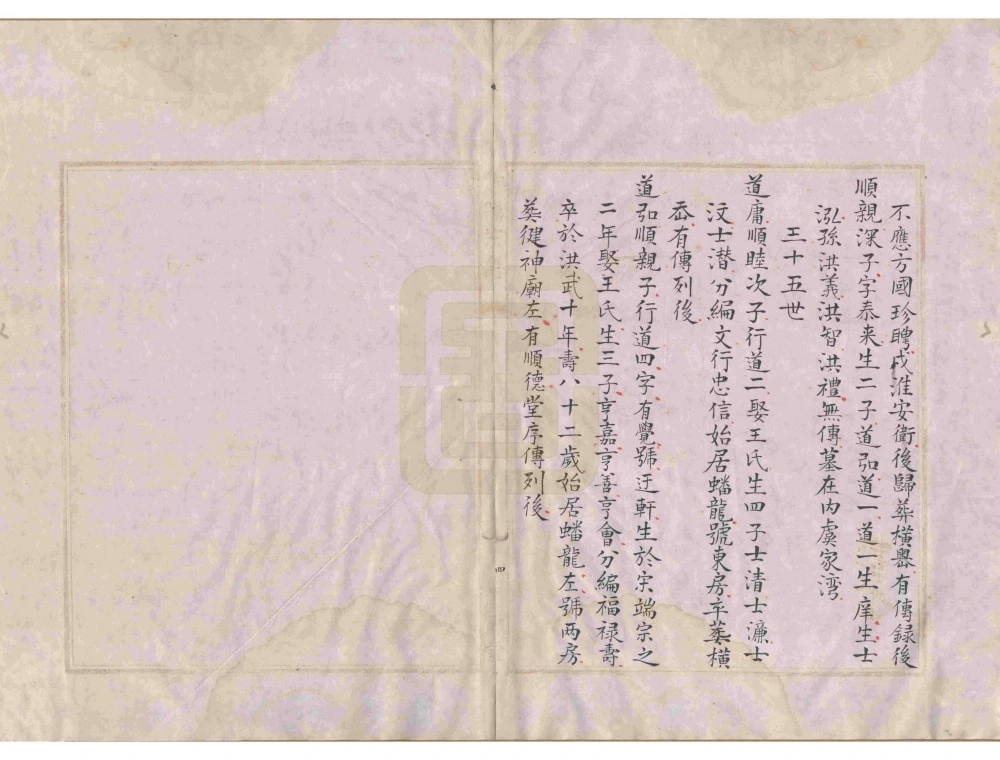 不應方國珍聘戍淮安衛後歸葬橫嶴有傳錄後
順親深子字泰来生二子道弘道一道一生庠生士
泓孫洪義洪智洪禮無傳墓在内虞家湾
三十五世
道庸順睦次子行道二娶王氏生四子士清士濂士
汶士潜分編文行忠信始居蟠龍號東房卒葬橫
岙有傳列後
道弘順親子行道四字有覺號迂軒生於宋端宗之
二年娶王氏生三子亨嘉亨善亨會分編福禄壽
卒於洪武十年壽八十二歲始居蟠龍左號两房
葬健神廟左有順德堂序傳列後
四